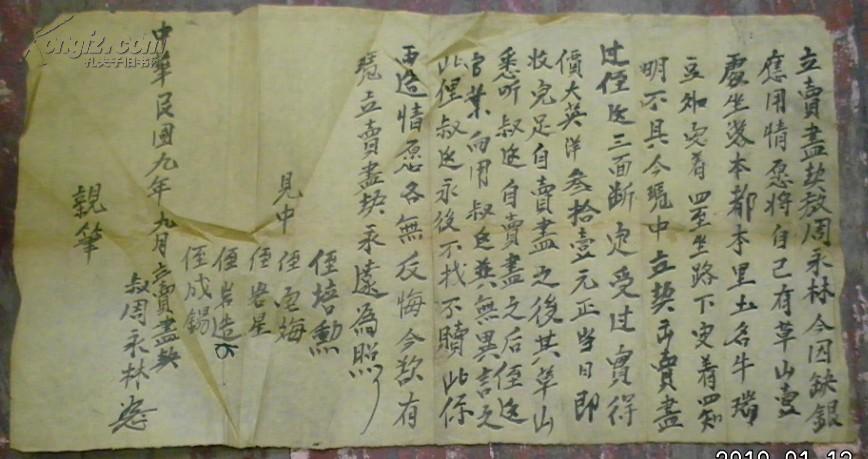 立賣盡契叔周永林今因缺銀
應用情愿將自己有草山壹
處坐落本都本里土名牛瑞
豆如定着四至坐路下定着四知
明不具今憑中立契出賣盡
过侄边三面断定受过實得
價大英洋叁拾壹元正當日即
收完足自賣盡之後其草山
悉听叔边自賣盡之后侄边
管業向用叔边並無異言之
此俚叔边永後不找不贖此係
兩造情愿各無反悔今欲有
憑立賣盡契永遠為照
侄培勲
見中 侄 梅
侄岩星
侄岩造
侄成錫
中華民國九年九月立賣盡契
叔周永林
親筆
Kongfz.com
孔夫子旧书网
2019 01 12